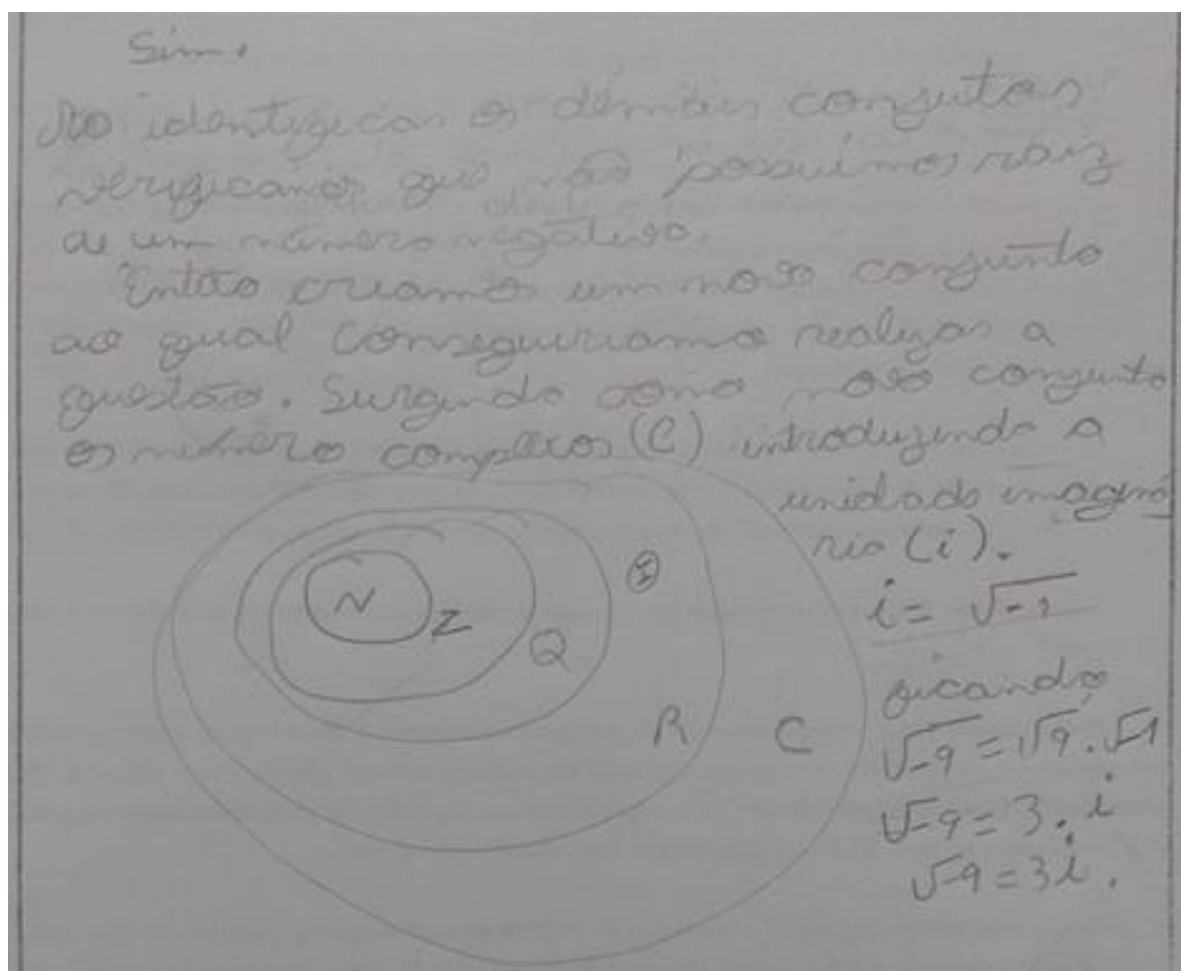 Sim.
Ao identificar os demais conjutos
verificamos que não possuímos raiz
de um número negativo.
Então criamos um novo conjunto
ao qual conseguiriamos realizar a
questão. Surgindo como novo conjunto
os número complexos (C) introduzindo a
unidade imaginá
ria (i).
i = √-1
ficando
√-9 = √9 . √-1
√-9 = 3 . i
√-9 = 3i .
N
Z
Q
R
C